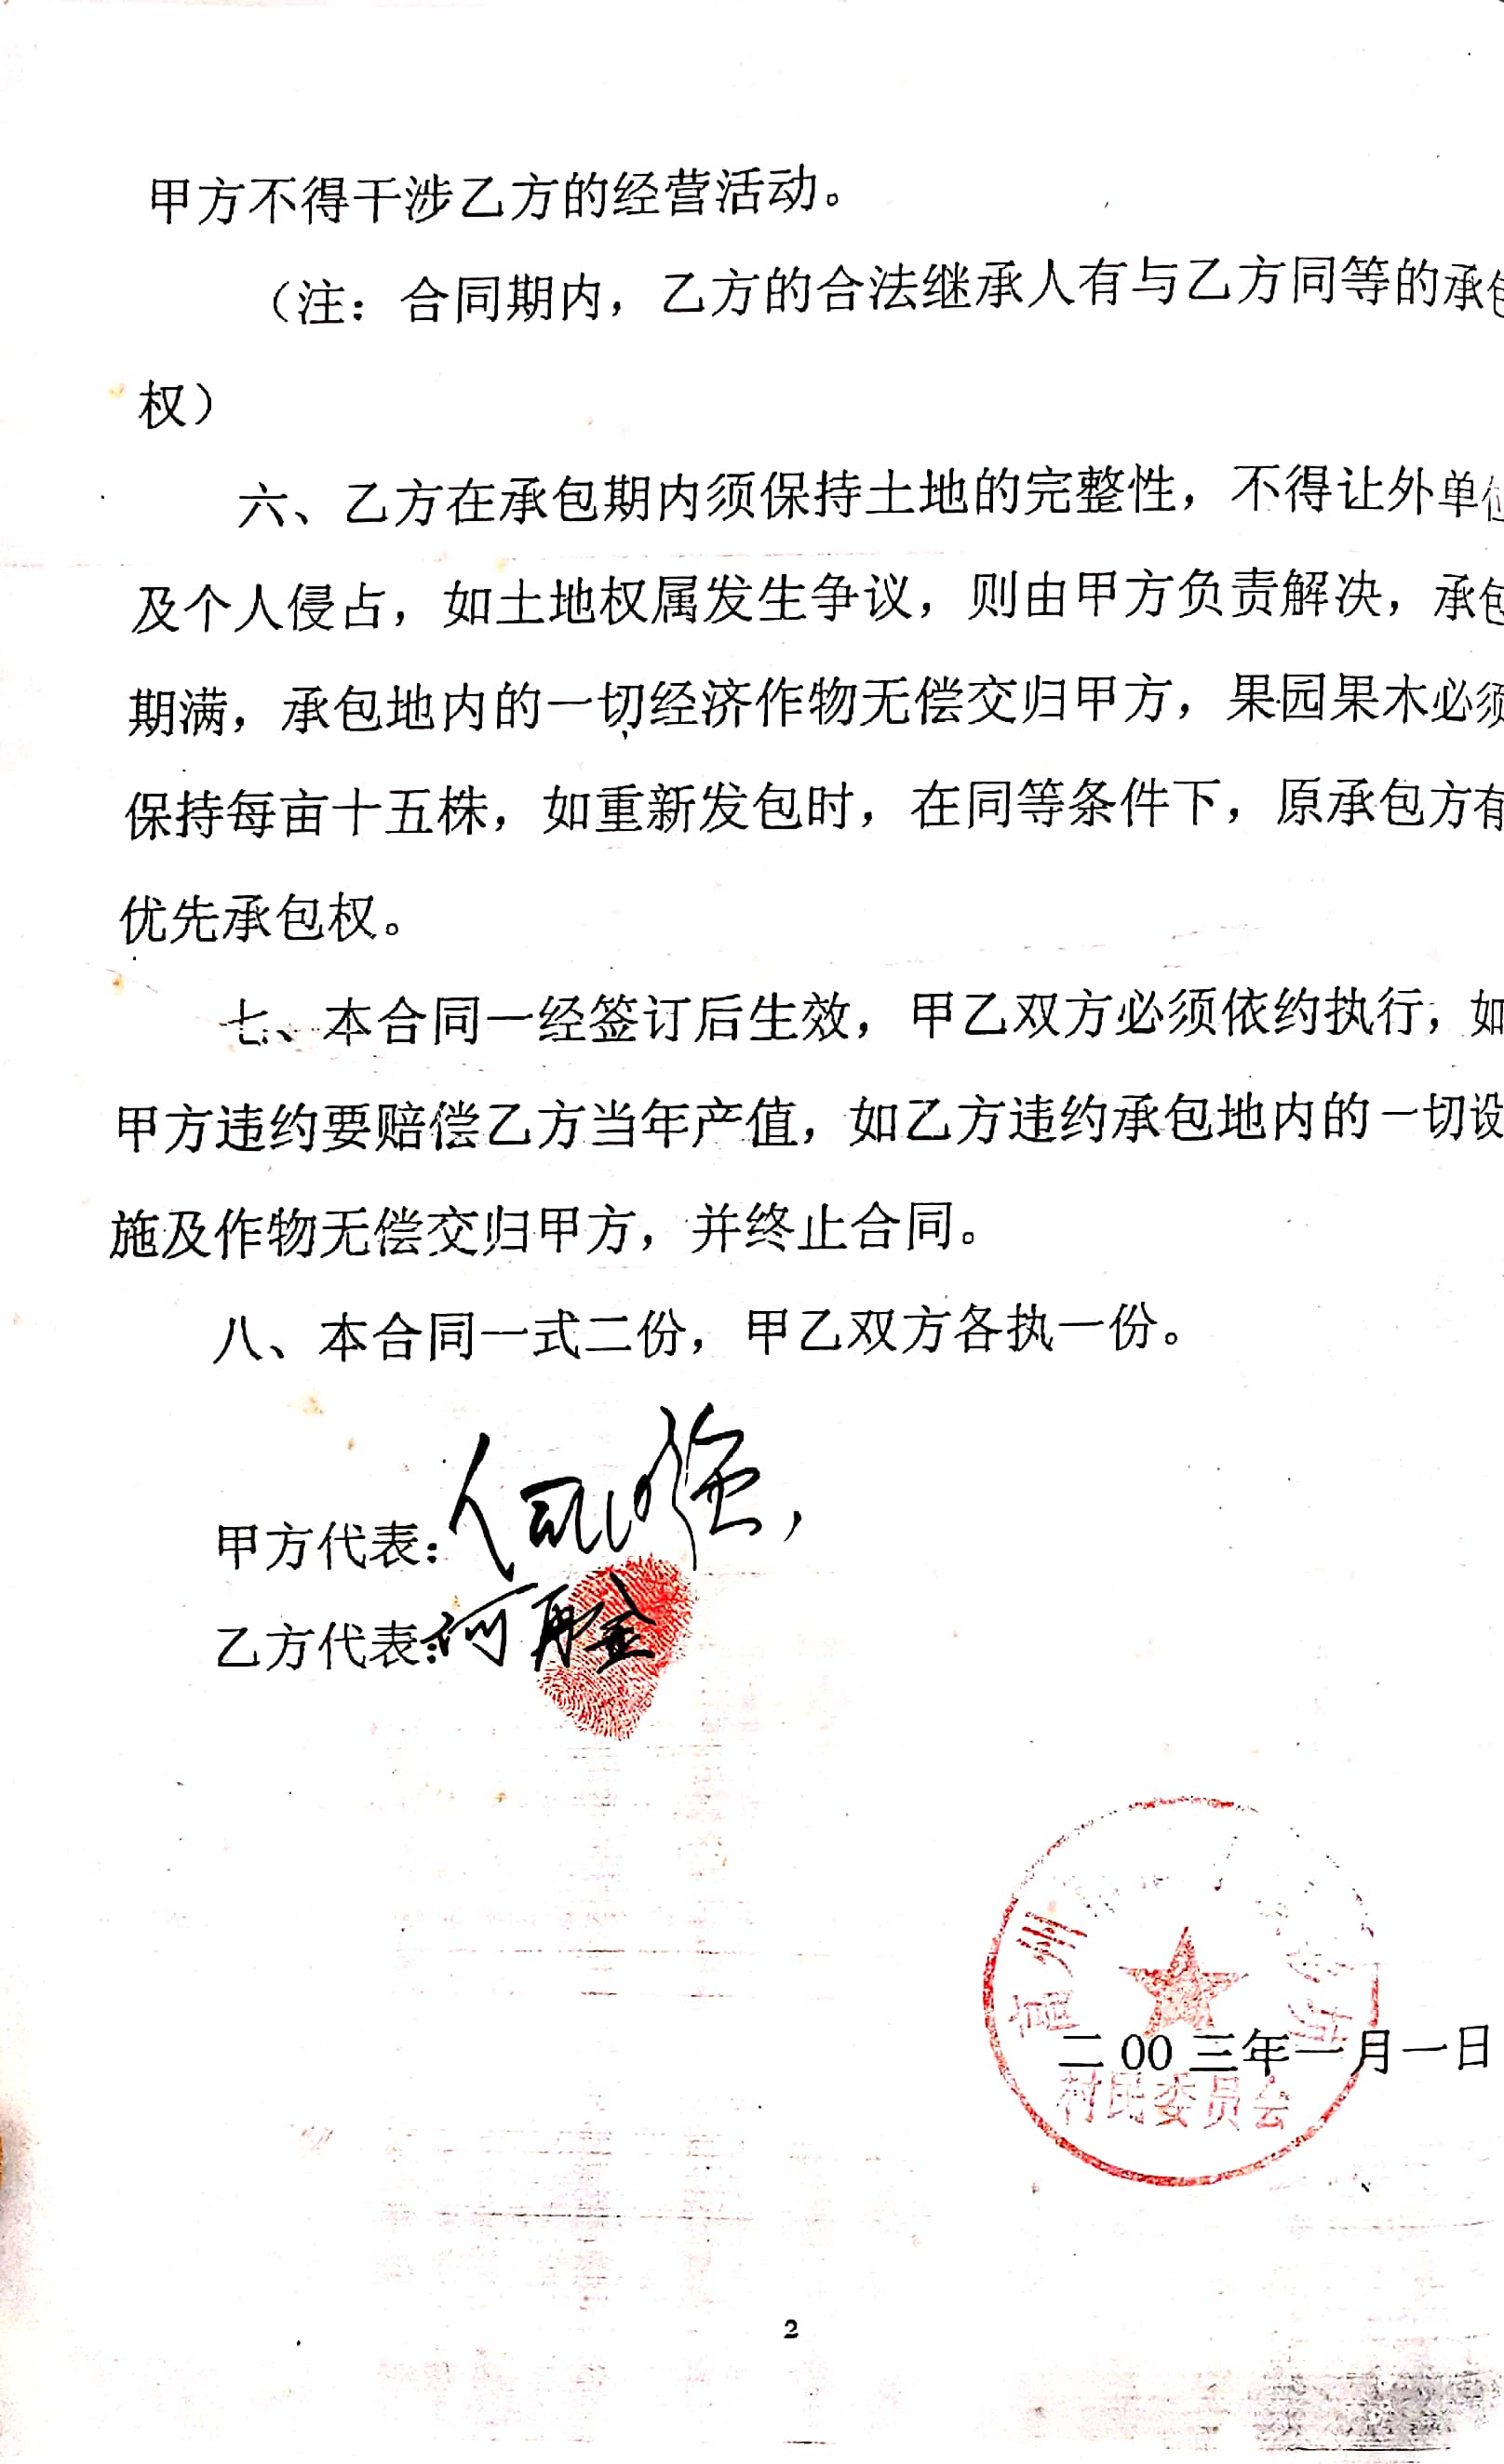 甲方不得干涉乙方的经营活动。
（注：合同期内，乙方的合法继承人有与乙方同等的承包
权）
六、乙方在承包期内须保持土地的完整性，不得让外单位
及个人侵占，如土地权属发生争议，则由甲方负责解决，承包
期满，承包地内的一切经济作物无偿交归甲方，果园果木必须
保持每亩十五株，如重新发包时，在同等条件下，原承包方有
优先承包权。
七、本合同一经签订后生效，甲乙双方必须依约执行，如
甲方违约要赔偿乙方当年产值，如乙方违约承包地内的一切设
施及作物无偿交归甲方，并终止合同。
八、本合同一式二份，甲乙双方各执一份。
甲方代表：
乙方代表：何再金
州
二00三年一月一日
村民委员会
2